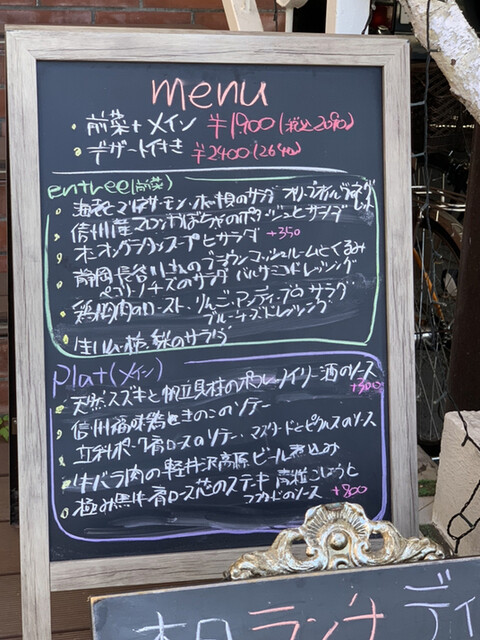 menu
前菜+メイン ¥1900(税込2090)
デザート付き ¥2400(2640)
entree(前菜)
海老とサーモン・のサラダ オリーブ
信州産かぼちゃのポタージュとサラダ
オニオングラタンスープとサラダ +350
静岡長谷川さんのブラウンマッシュルームとくるみ
ペコリーノチーズのサラダ バルサミコドレッシング
鶏胸肉のロースト、りんご・アンディーブのサラダ
ブルーチーズドレッシング
生ハム・柿・梨のサラダ
Plat(メイン)
天然スズキと帆立貝柱のポワレ ノイリー酒のソース +300
信州福味鶏ときのこのソテー
豚肩ロースのソテー・マスタードとピクルスのソース
牛バラ肉の軽井沢高原ビール煮込み
極み黒牛肩ロース芯のステーキ 青柚こしょうと
アボカドのソース +800
本日ランチ ディ